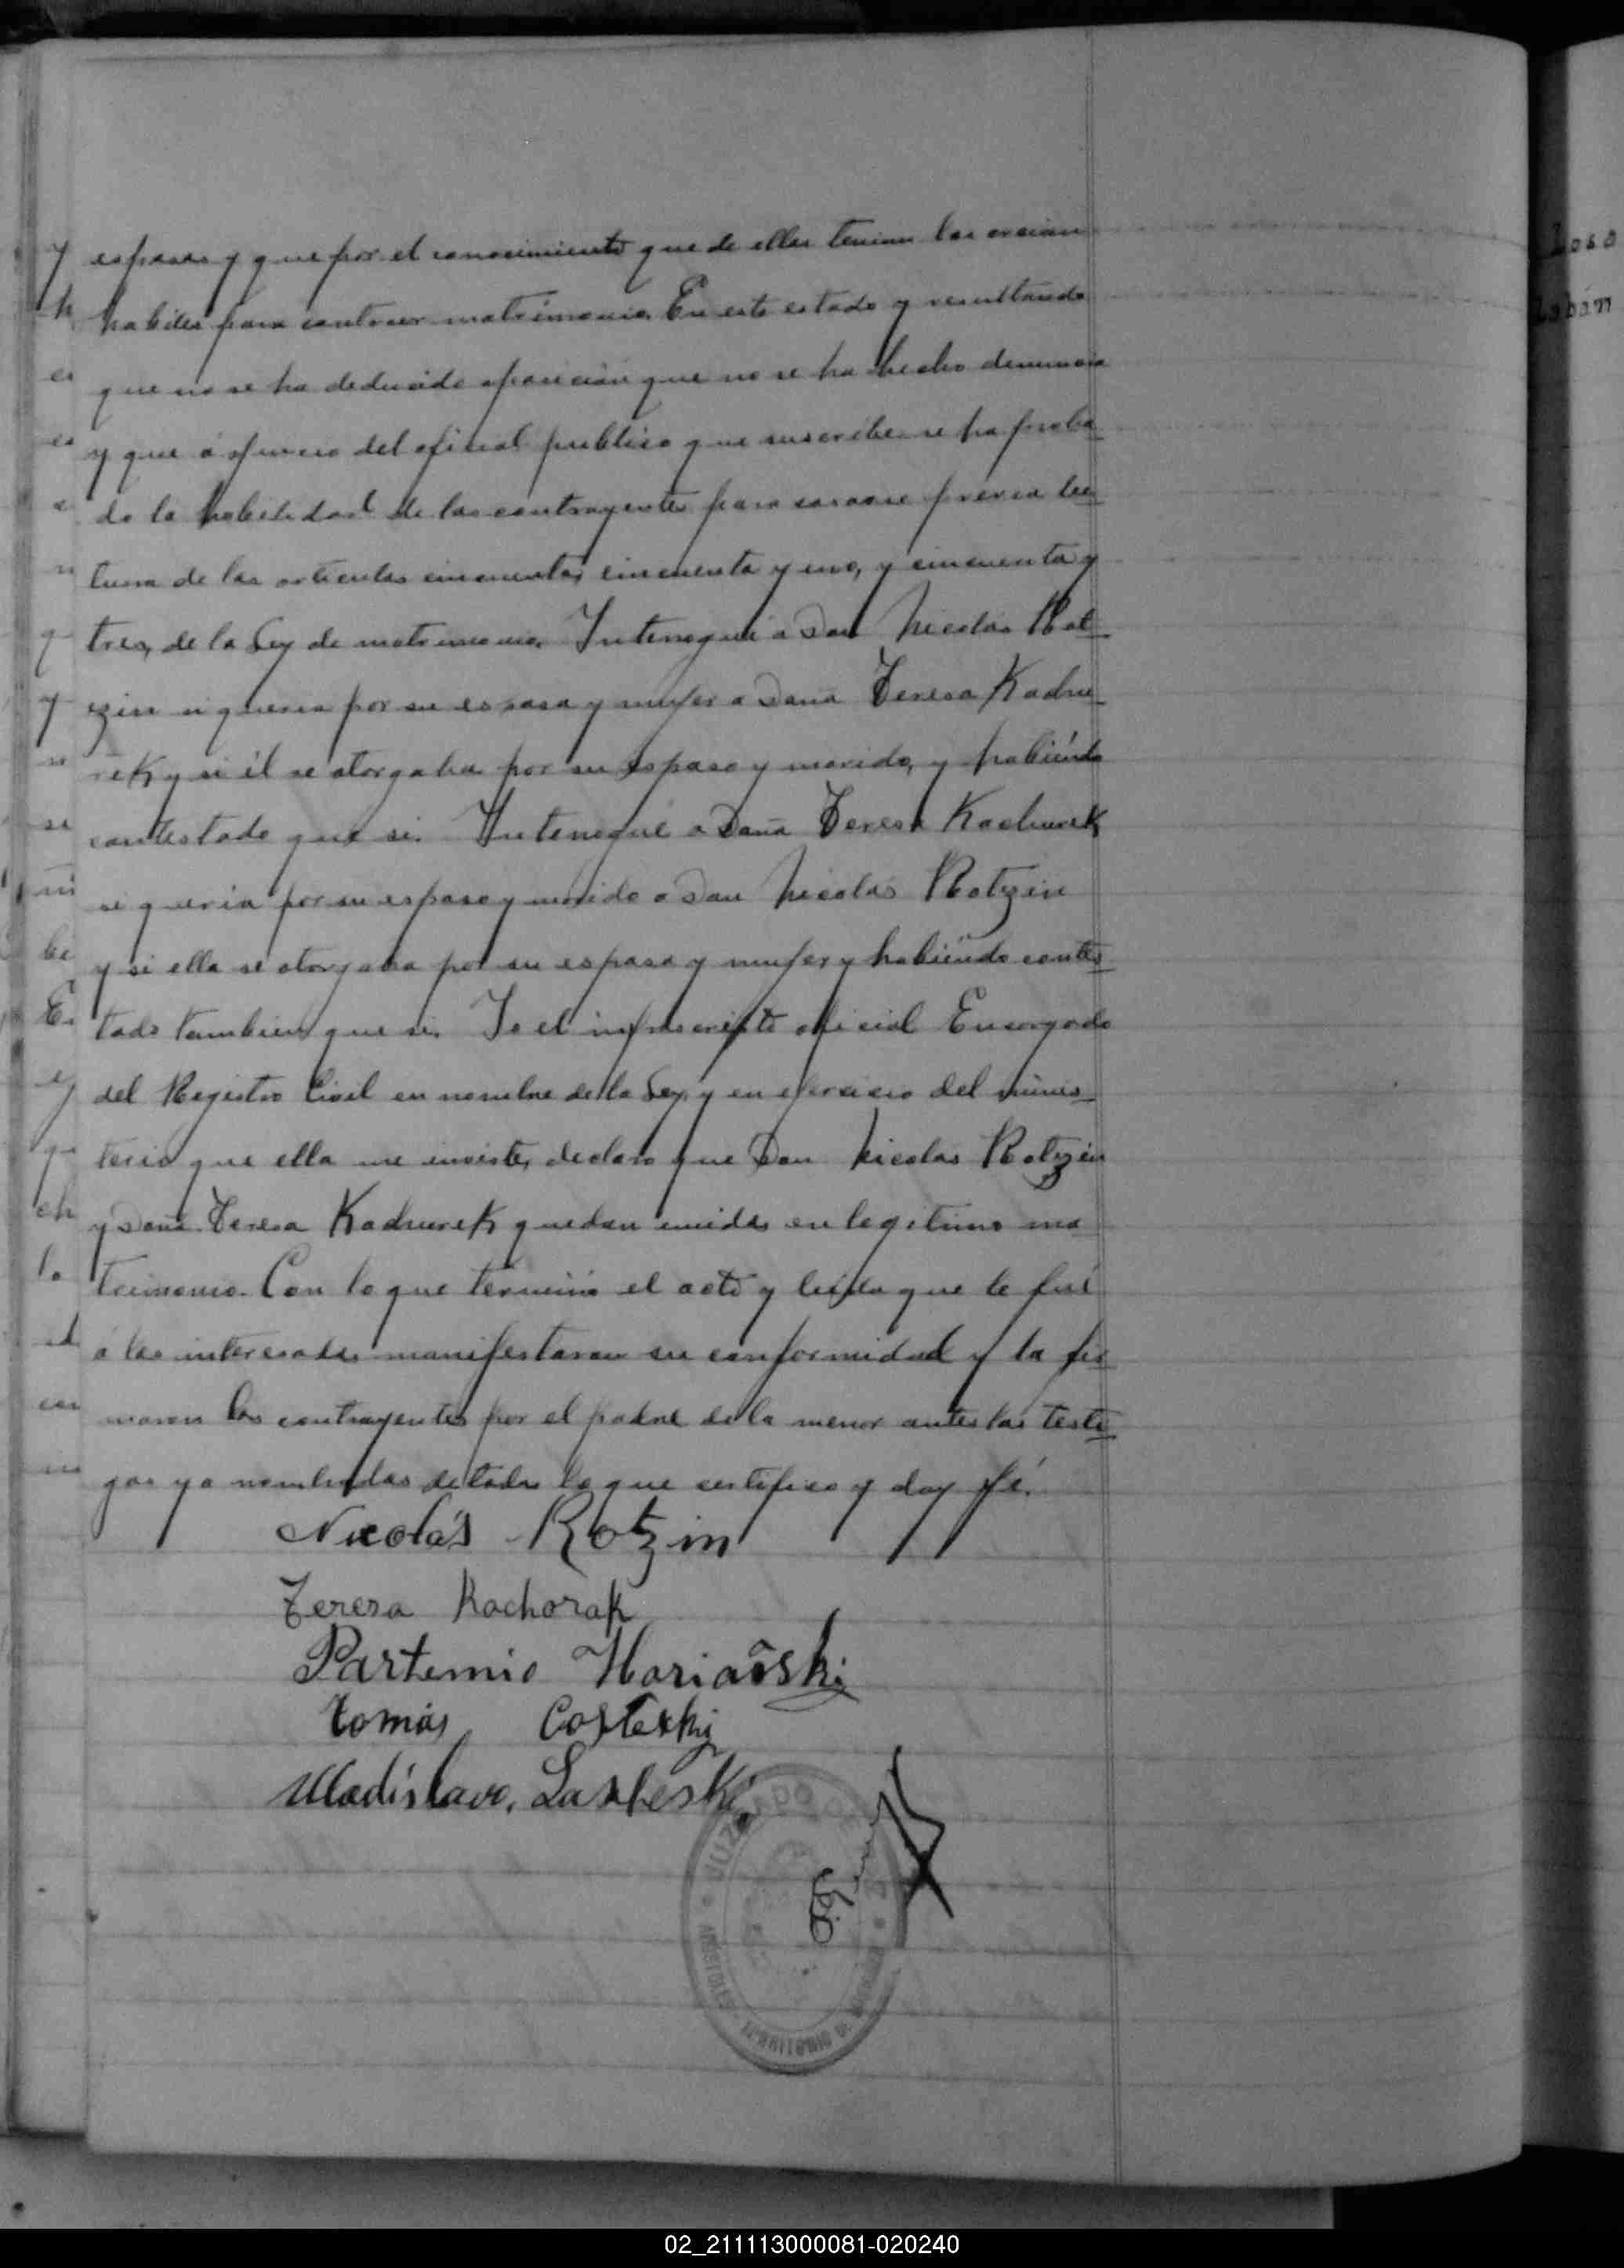 esposos y que por el conocimiento que de ellos tenian los creian
habiles para contraer matrimonio. En este estado y resultando
que no se ha deducido oposición que no se ha hecho denuncia
y que á juicio del oficial publico que suscribe se ha proba
do la habilidad de los contrayentes para casarse previa lec
tura de los articulos cincuenta, cincuenta y uno, y cincuenta y
tres, de la Ley de matrimonio. Interrogué a Don Nicolas Rot
zin si queria por su esposa y mujer a Doña Teresa Kachu
rek y si él se otorgaba por su esposo y marido, y habiendo
contestado que si. Interrogué a Doña Teresa Kachurek
si queria por su esposo y marido a Don Nicolás Rotzin
y si ella se otorgaba por su esposa y mujer y habiendo contes
tado tambien que si. Yo el infrascripto oficial Encargado
del Registro Civil en nombre de la Ley, y en ejercicio del minis
terio que ella me inviste, declaro que Don Nicolas Rotzin
y Doña Teresa Kachurek quedan unidos en legitimo ma
trimonio. Con lo que terminó el acto y leida que le fué
á los interesados manifestaron su conformidad y la fir
maron los contrayentes por el padre de la menor antes los testi
gos ya nombrados de todo lo que certifico y doy fé.
Nicolás Rotzin
Teresa Kachorak
Partemio
Tomás
Uladislavo,
JUZGADO DE
TERRITORIO DE
Loso
02_211113000081-020240